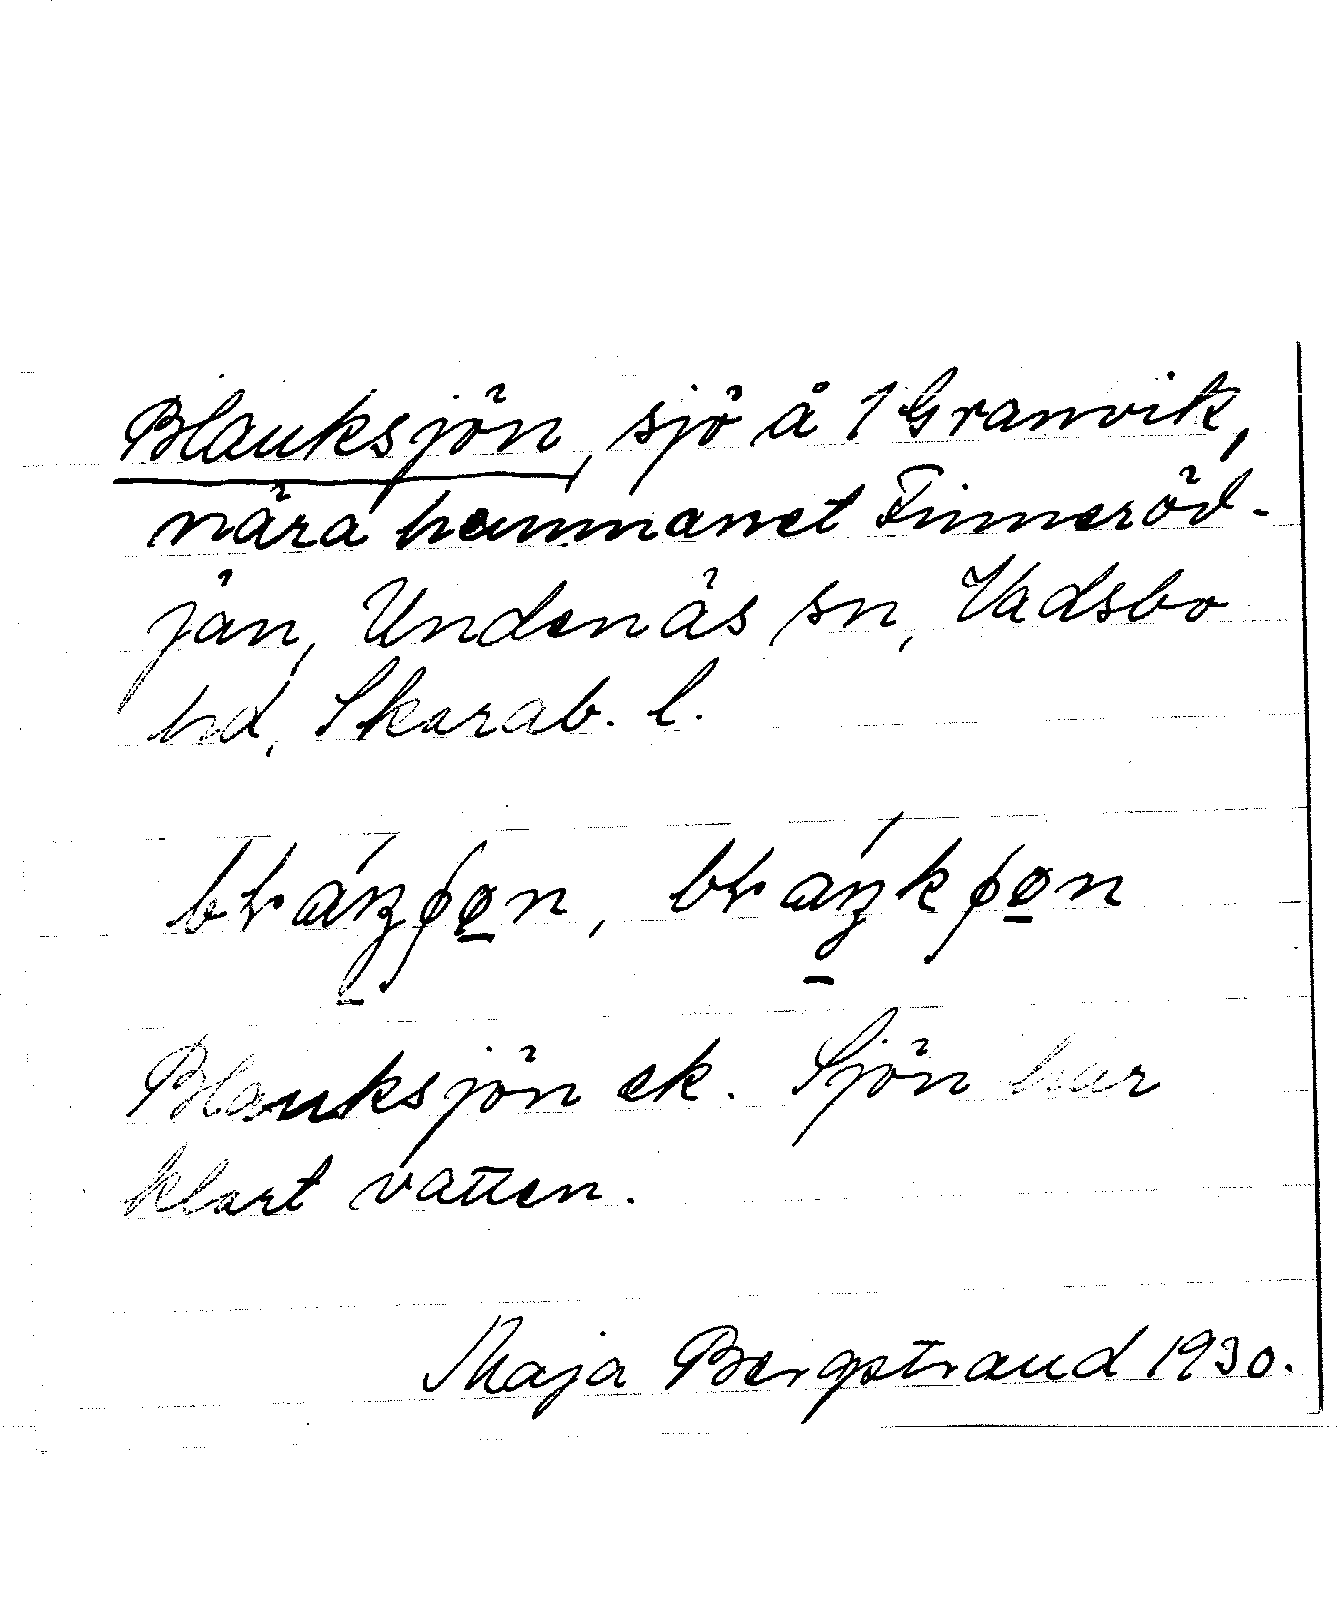 Blanksjön, sjö å 1 Granvik,
nära hemmanet Finneröd-
jän, Undenäs sn, Vadsbo
hd, Skarab. l.
bɫáŋʃøn, bɫáŋkʃøn
Blanksjön ek. Sjön har
klart vatten.
Maja Bergstrand 1930.